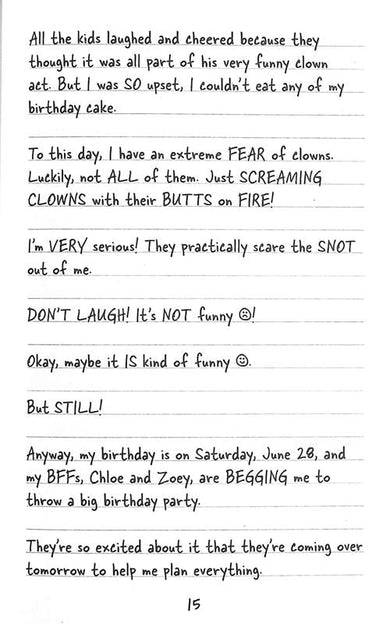 All the kids laughed and cheered because they
thought it was all part of his very funny clown
act. But I was SO upset, I couldn't eat any of my
birthday cake.
To this day, I have an extreme FEAR of clowns.
Luckily, not ALL of them. Just SCREAMING
CLOWNS with their BUTTS on FIRE!
I'm VERY serious! They practically scare the SNOT
out of me.
DON'T LAUGH! It's NOT funny ☹!
Okay, maybe it IS kind of funny ☺.
But STILL!
Anyway, my birthday is on Saturday, June 28, and
my BFFs, Chloe and Zoey, are BEGGING me to
throw a big birthday party.
They're so excited about it that they're coming over
tomorrow to help me plan everything.
15